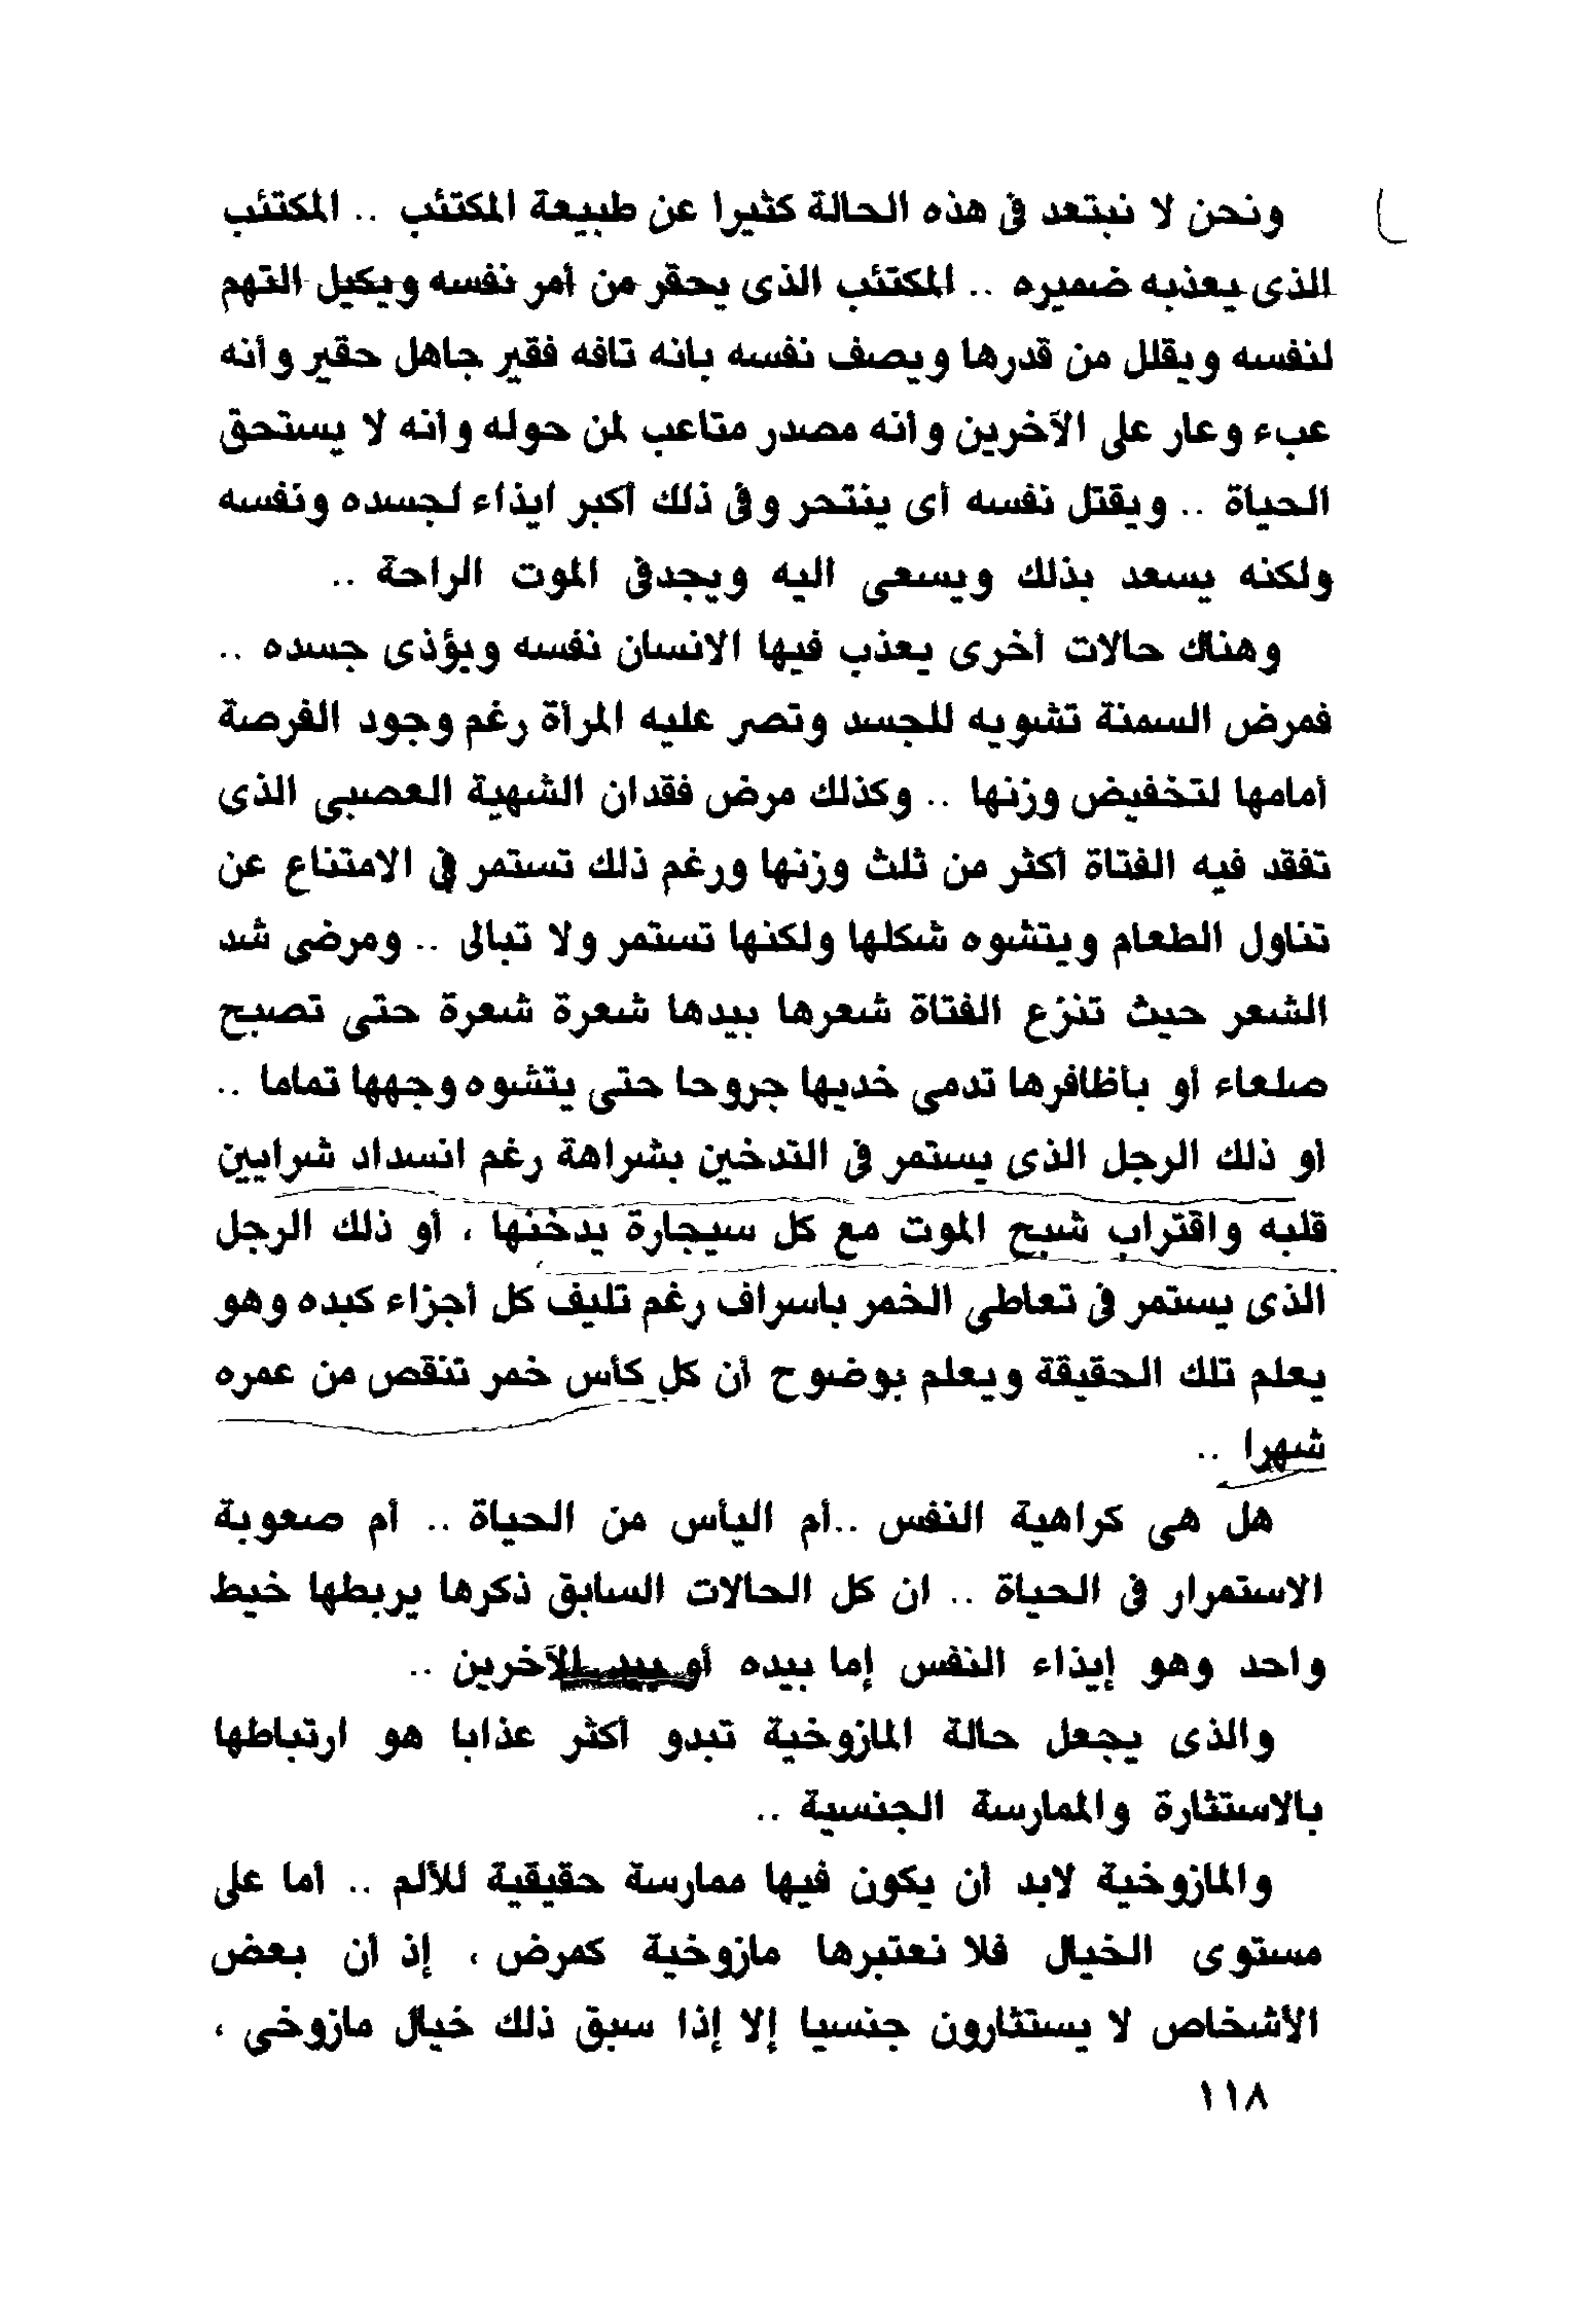 ونحن لا نبتعد فى هذه الحالة كثيرا عن طبيعة المكتئب .. المكتئب
الذى يعذبه ضميره .. المكتئب الذى يحقر من أمر نفسه ويكيل التهم
لنفسه ويقلل من قدرها ويصف نفسه بانه تافه فقير جاهل حقير وأنه
عبء وعار على الآخرين وانه مصدر متاعب لمن حوله وانه لا يستحق
الحياة .. ويقتل نفسه أى ينتحر وفى ذلك أكبر ايذاء لجسده ونفسه
ولكنه يسعد بذلك ويسعى اليه ويجدفى الموت الراحة ..
وهناك حالات أخرى يعذب فيها الانسان نفسه ويؤذى جسده ..
فمرض السمنة تشويه للجسد وتصر عليه المرأة رغم وجود الفرصة
أمامها لتخفيض وزنها .. وكذلك مرض فقدان الشهية العصبى الذى
تفقد فيه الفتاة أكثر من ثلث وزنها ورغم ذلك تستمر فى الامتناع عن
تناول الطعام ويتشوه شكلها ولكنها تستمر ولا تبالى .. ومرضى شد
الشعر حيث تنزع الفتاة شعرها بيدها شعرة شعرة حتى تصبح
صلعاء أو بأظافرها تدمى خديها جروحا حتى يتشوه وجهها تماما ..
أو ذلك الرجل الذى يستمر فى التدخين بشراهة رغم انسداد شرايين
قلبه واقتراب شبح الموت مع كل سيجارة يدخنها ، أو ذلك الرجل
الذى يستمر فى تعاطى الخمر باسراف رغم تليف كل أجزاء كبده وهو
يعلم تلك الحقيقة ويعلم بوضوح أن كل كأس خمر تنقص من عمره
شهرا ..
هل هى كراهية النفس ..أم اليأس من الحياة .. أم صعوبة
الاستمرار فى الحياة .. ان كل الحالات السابق ذكرها يربطها خيط
واحد وهو إيذاء النفس إما بيده أو بيد الآخرين ..
والذى يجعل حالة المازوخية تبدو أكثر عذابا هو ارتباطها
بالاستثارة والممارسة الجنسية ..
والمازوخية لابد أن يكون فيها ممارسة حقيقية للألم .. أما على
مستوى الخيال فلا نعتبرها مازوخية كمرض ، إذ أن بعض
الأشخاص لا يستثارون جنسيا إلا إذا سبق ذلك خيال مازوخى ،
١١٨